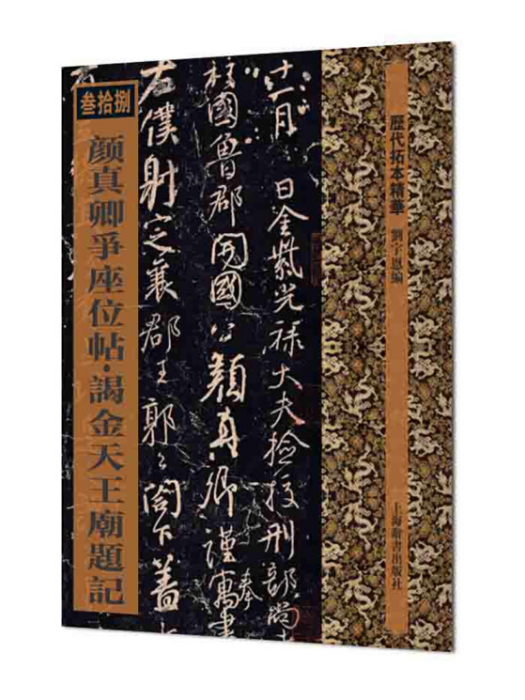 叁拾捌
颜真卿爭座位帖·謁金天王廟題記
十一月 日金紫光祿大夫檢校刑部尚
柱國魯郡開國公顏真卿謹奉寓書
右僕射定襄郡王郭公閤下蓋
歷代拓本精華
上海辭書出版社